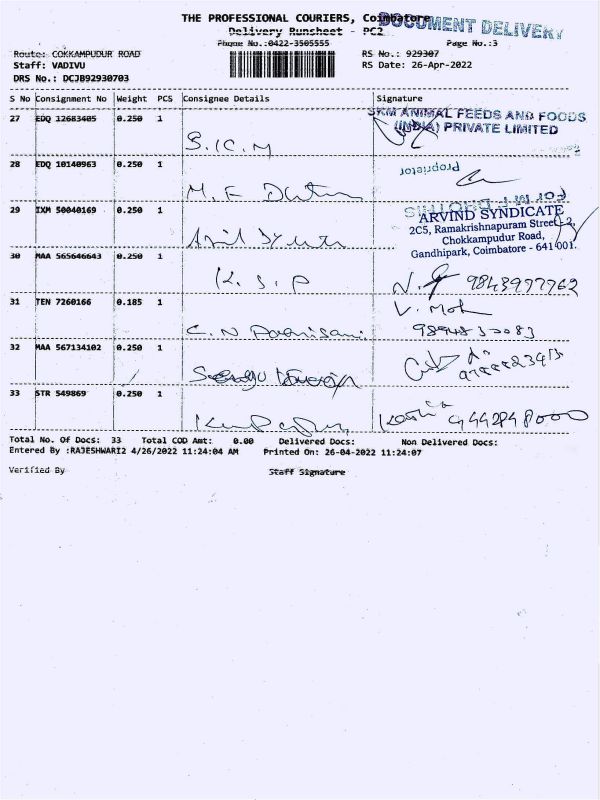 THE PROFESSIONAL COURIERS, Coimbatore
DOCUMENT DELIVERY
Delivery Runsheet - PC2
Phone No.:0422-3505555
Page No.:3
Route: COKKAMPUDUR ROAD
RS No.: 929307
Staff: VADIVU
RS Date: 26-Apr-2022
DRS No.: DCJB92930703
S No Consignment No Weight PCS Consignee Details Signature
27 EDQ 12683405 0.250 1
SKM ANIMAL FEEDS AND FOODS
(INDIA) PRIVATE LIMITED
S.K.M
28 EDQ 10140963 0.250 1
Proprietor
M.F
29 IXM 50040169 0.250 1
ARVIND SYNDICATE
2C5, Ramakrishnapuram Street-2,
Chokkampudur Road,
Gandhipark, Coimbatore - 641 001.
30 MAA 565646643 0.250 1
K.S.P
9843977962
31 TEN 7260166 0.185 1
V. Moh
C.N
32 MAA 567134102 0.250 1
33 STR 549869 0.250 1
Total No. Of Docs: 33 Total COD Amt: 0.00 Delivered Docs: Non Delivered Docs:
Entered By :RAJESHWARI2 4/26/2022 11:24:04 AM Printed On: 26-04-2022 11:24:07
Verified By Staff Signature